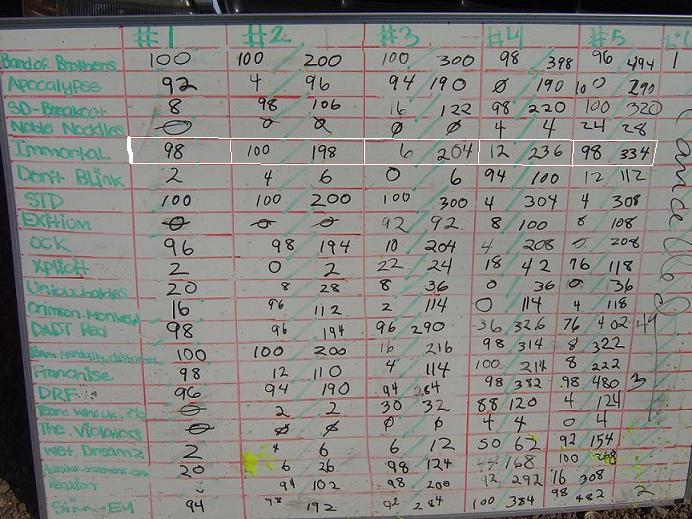 #1 #2 #3 #4 #5
Band of Brothers 100 100 200 100 300 98 398 96 494 1
Apocalypse 92 4 96 94 190 0 190 100 290
SD-Breakout 8 98 106 16 122 98 220 100 320
Noble Noddles 0 0 0 0 0 4 4 24 28
Immortal 98 100 198 6 204 12 236 98 334
Don't Blink 2 4 6 0 6 94 100 12 112
STD 100 100 200 100 300 4 304 4 308
Exitium 0 0 0 92 92 8 100 8 108
OCK 96 98 194 10 204 4 208 0 208
Xplicit 2 0 2 22 24 18 42 76 118
Untouchables 20 8 28 8 36 0 36 0 36
Crimson Monkeys 16 96 112 2 114 0 114 4 118
DADT Red 98 96 194 96 290 36 326 76 402
100 100 200 16 216 98 314 8 322
Franchise 98 12 110 4 114 100 214 8 222
DRF 96 94 190 94 284 98 382 98 480 3
Team 0 2 2 30 32 88 120 4 124
The Violators 0 0 0 0 0 4 4 0 4
Wet Dreamz 2 4 6 6 12 50 62 92 154
20 6 26 98 124 168 100 268
Reaxion 94 102 98 200 92 292 16 308
94 98 192 92 284 100 384 98 482 2